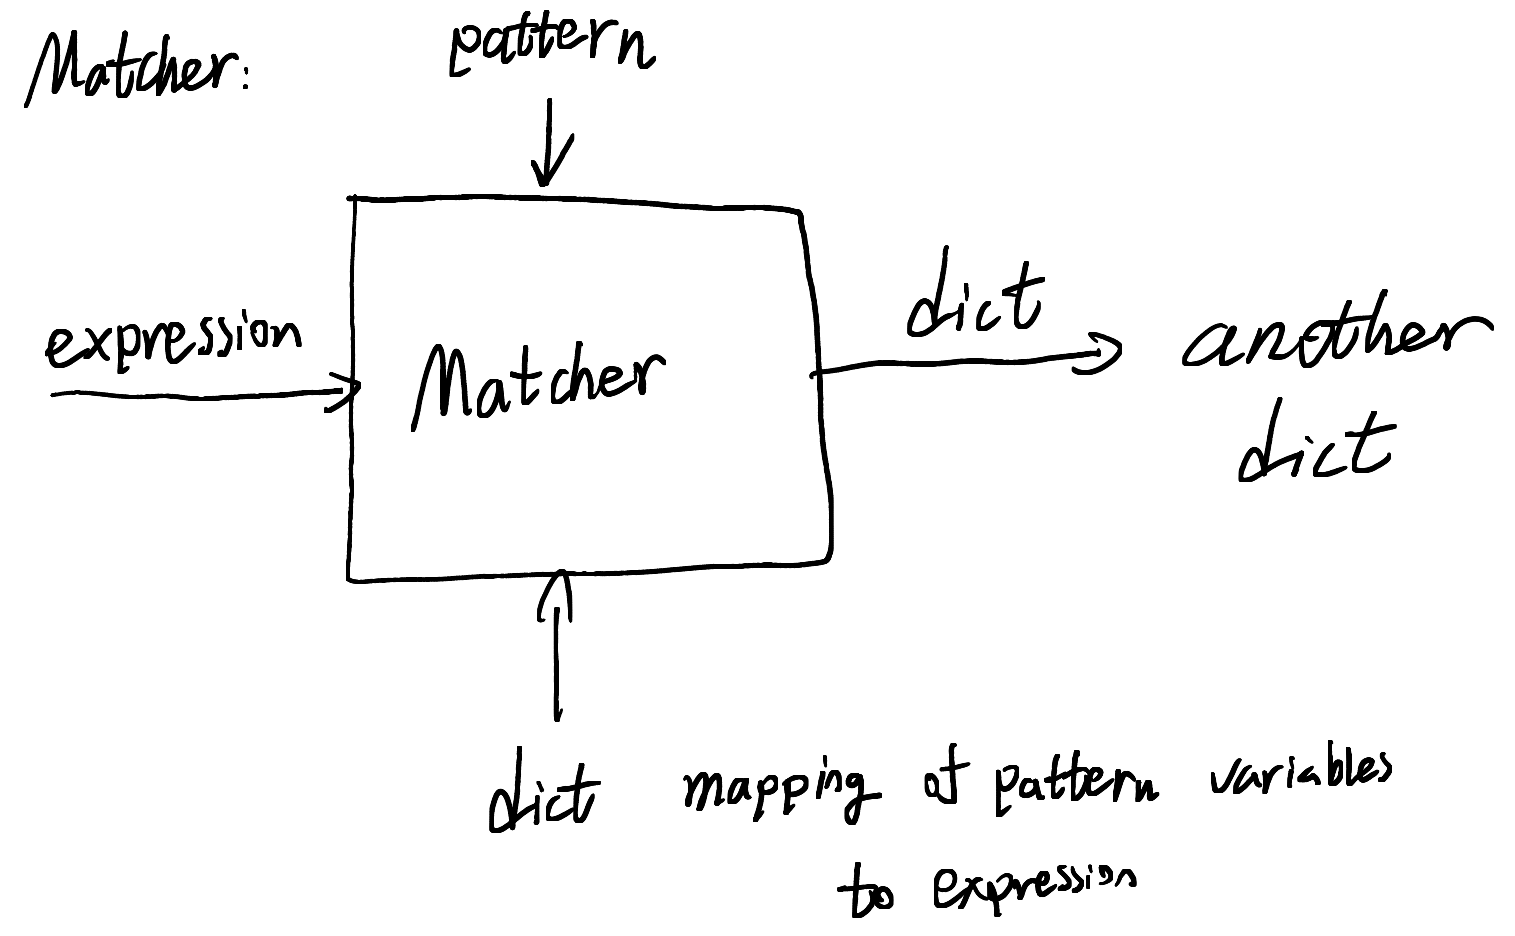 Matcher:
pattern
expression
Matcher
dict
another
dict
dict mapping of pattern variables
to expression